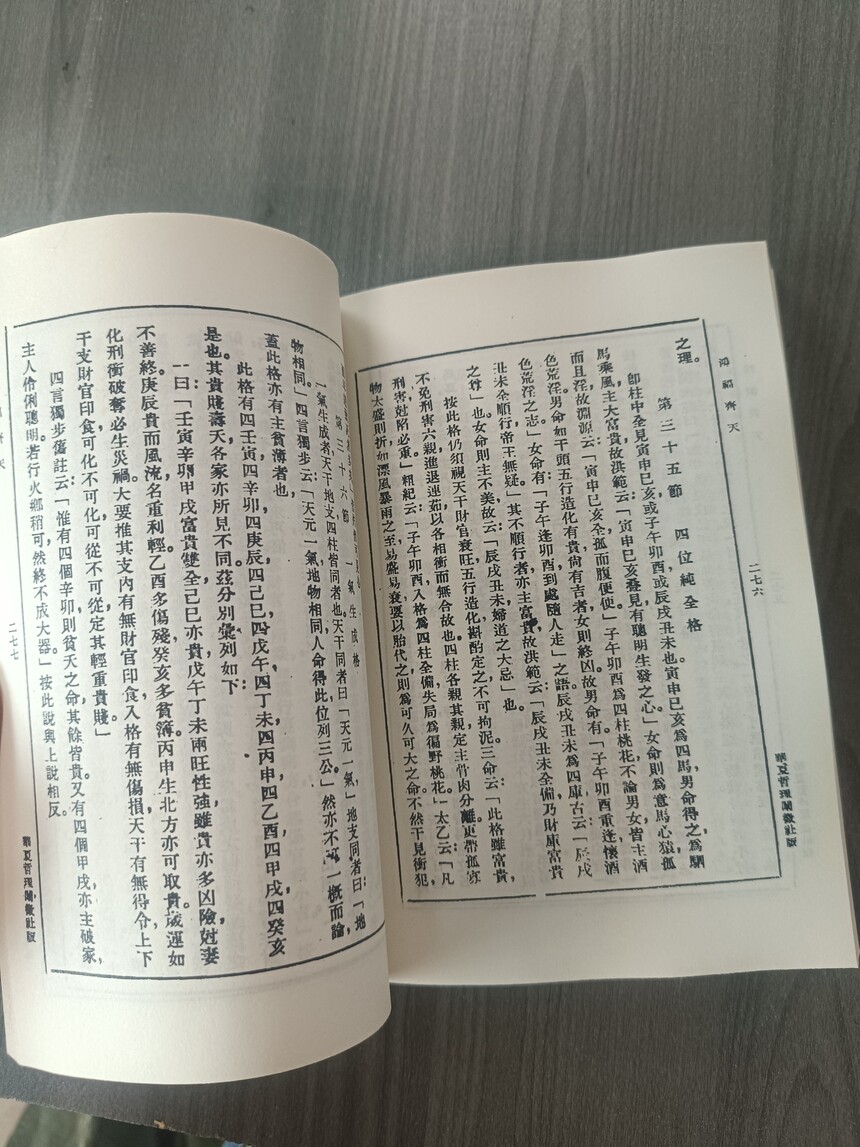 鴻福齊天
二七六
之理。
第三十五節　四位純全格
卽柱中全見寅申巳亥或子午卯酉或辰戌丑未也。寅申巳亥爲四馬男命得之爲駟
馬乘風主大富貴故洪範云：「寅申巳亥叠見有聰明生發之心」女命則爲意馬心猿孤
而且淫故淵源云：「寅申巳亥全孤而腹便便」子午卯酉爲四柱桃花不論男女皆主酒
色荒淫男命如干頭五行造化有貴尙有吉者女則終凶故男命有「子午卯酉重逢懷酒
色荒淫之志」女命有：「子午逢卯酉到處隨人走」之語辰戌丑未爲四庫古云：「辰戌
丑未全順行帝王無疑」其不順行者亦主富貴故洪範云「辰戌丑未全備乃財庫富貴
之尊」也女命則主不美故云：「辰戌丑未婦道之大忌」也。
按此格仍須視天干財官衰旺五行造化斟酌定之不可拘泥三命云：「此格雖富貴，
不免刑害六親進退連茹以各相衝而無合故也四柱各親其親定主骨肉分離更帶孤寡
刑害尅陷必重」粗紀云：「子午卯酉入格爲四柱全備失局爲徧野桃花」太乙云：「凡
物太盛則折如漂風暴雨之至易盛易衰要以胎代之則爲可久可大之命不然干見衝犯，
華夏哲理闡微社版
第三十六節　一氣生成格
一氣生成者天干地支四柱皆同者也天干同者曰「天元一氣」地支同者曰「地
物相同」四言獨步云：「天元一氣地物相同人命得此位列三公」然亦不可一概而論，
蓋此格亦有主貧薄者也，
此格有四壬寅四辛卯四庚辰四己巳四戊午四丁未四丙申四乙酉四甲戌四癸亥
是也其貴賤壽夭各家亦所見不同茲分別彙列如下：
一曰「壬寅辛卯甲戌富貴雙全己巳亦貴戊午丁未兩旺性強雖貴亦多凶險尅妻
不善終庚辰貴而風流名重利輕乙酉多傷殘癸亥多貧簿。丙申生北方亦可取貴歲運如
化刑衝破奪必生災禍大要推其支內有無財官印食入格有無傷損天干有無得令上下
干支財官印食可化不可化可從不可從定其輕重貴賤」
四言獨步舊註云：「惟有四個辛卯則貧夭之命其餘皆貴又有四個甲戌亦主破家，
主人伶俐聰明若行火鄉稍可然終不成大器」按此說與上說相反。
福齊天
二七七
華夏哲理闡微社版